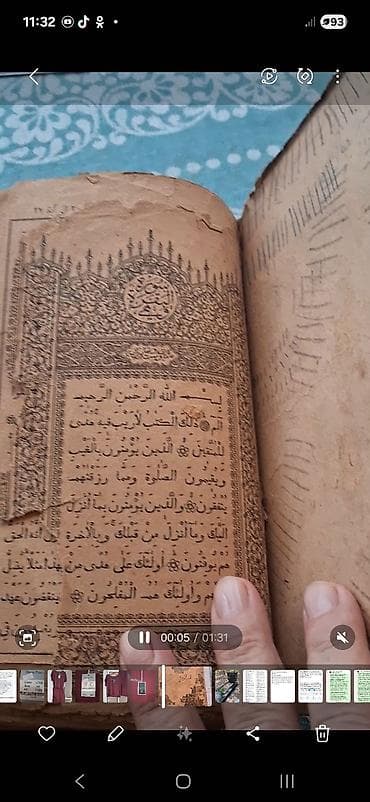 11:32
93
سورة البقرة
بسم الله الرحمن الرحيم
الم ذلك الكتب لا ريب فيه هدى
للمتقين الذين يؤمنون بالغيب
ويقيمون الصلوة ومما رزقنهم
ينفقون والذين يؤمنون بما أنزل
اليك وما أنزل من قبلك وبالآخرة
هم يوقنون أولئك على هدى من
وأولئك هم المفلحون
00:05 / 01:31